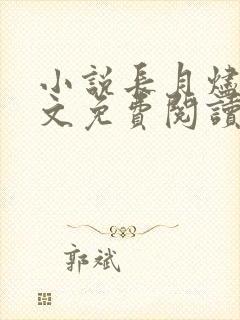 小說長月燼
文免費閱讀
郭斌